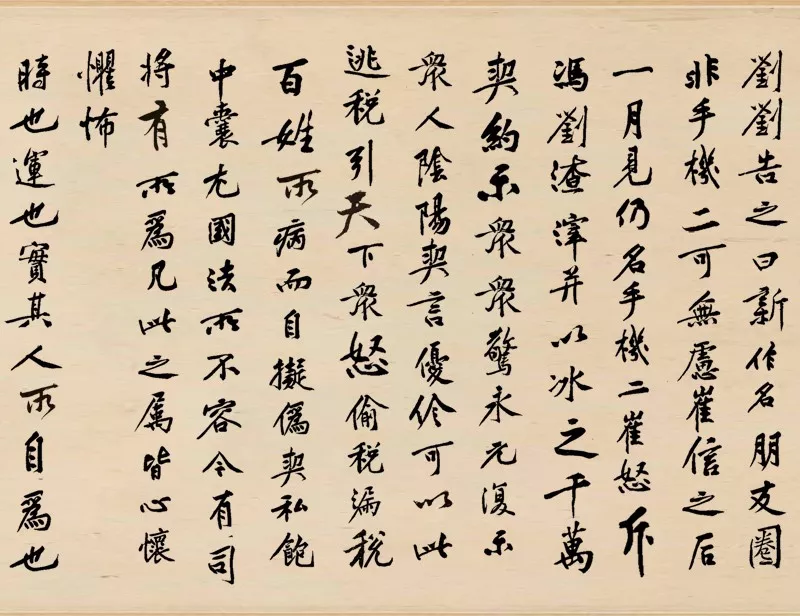 劉劉告之曰新作名朋友圈
非手機二可無慮崔信之后
一月見仍名手機二崔怒斥
馮劉渣滓并以冰之千萬
契約示眾眾驚永元復示
眾人陰陽契言優伶可以此
逃税引天下眾怒偷税漏税
百姓所病而自擬偽契私飽
中囊尤國法所不容今有司
将有所爲凡此之属皆心懷
懼怖
時也運也實其人所自爲也